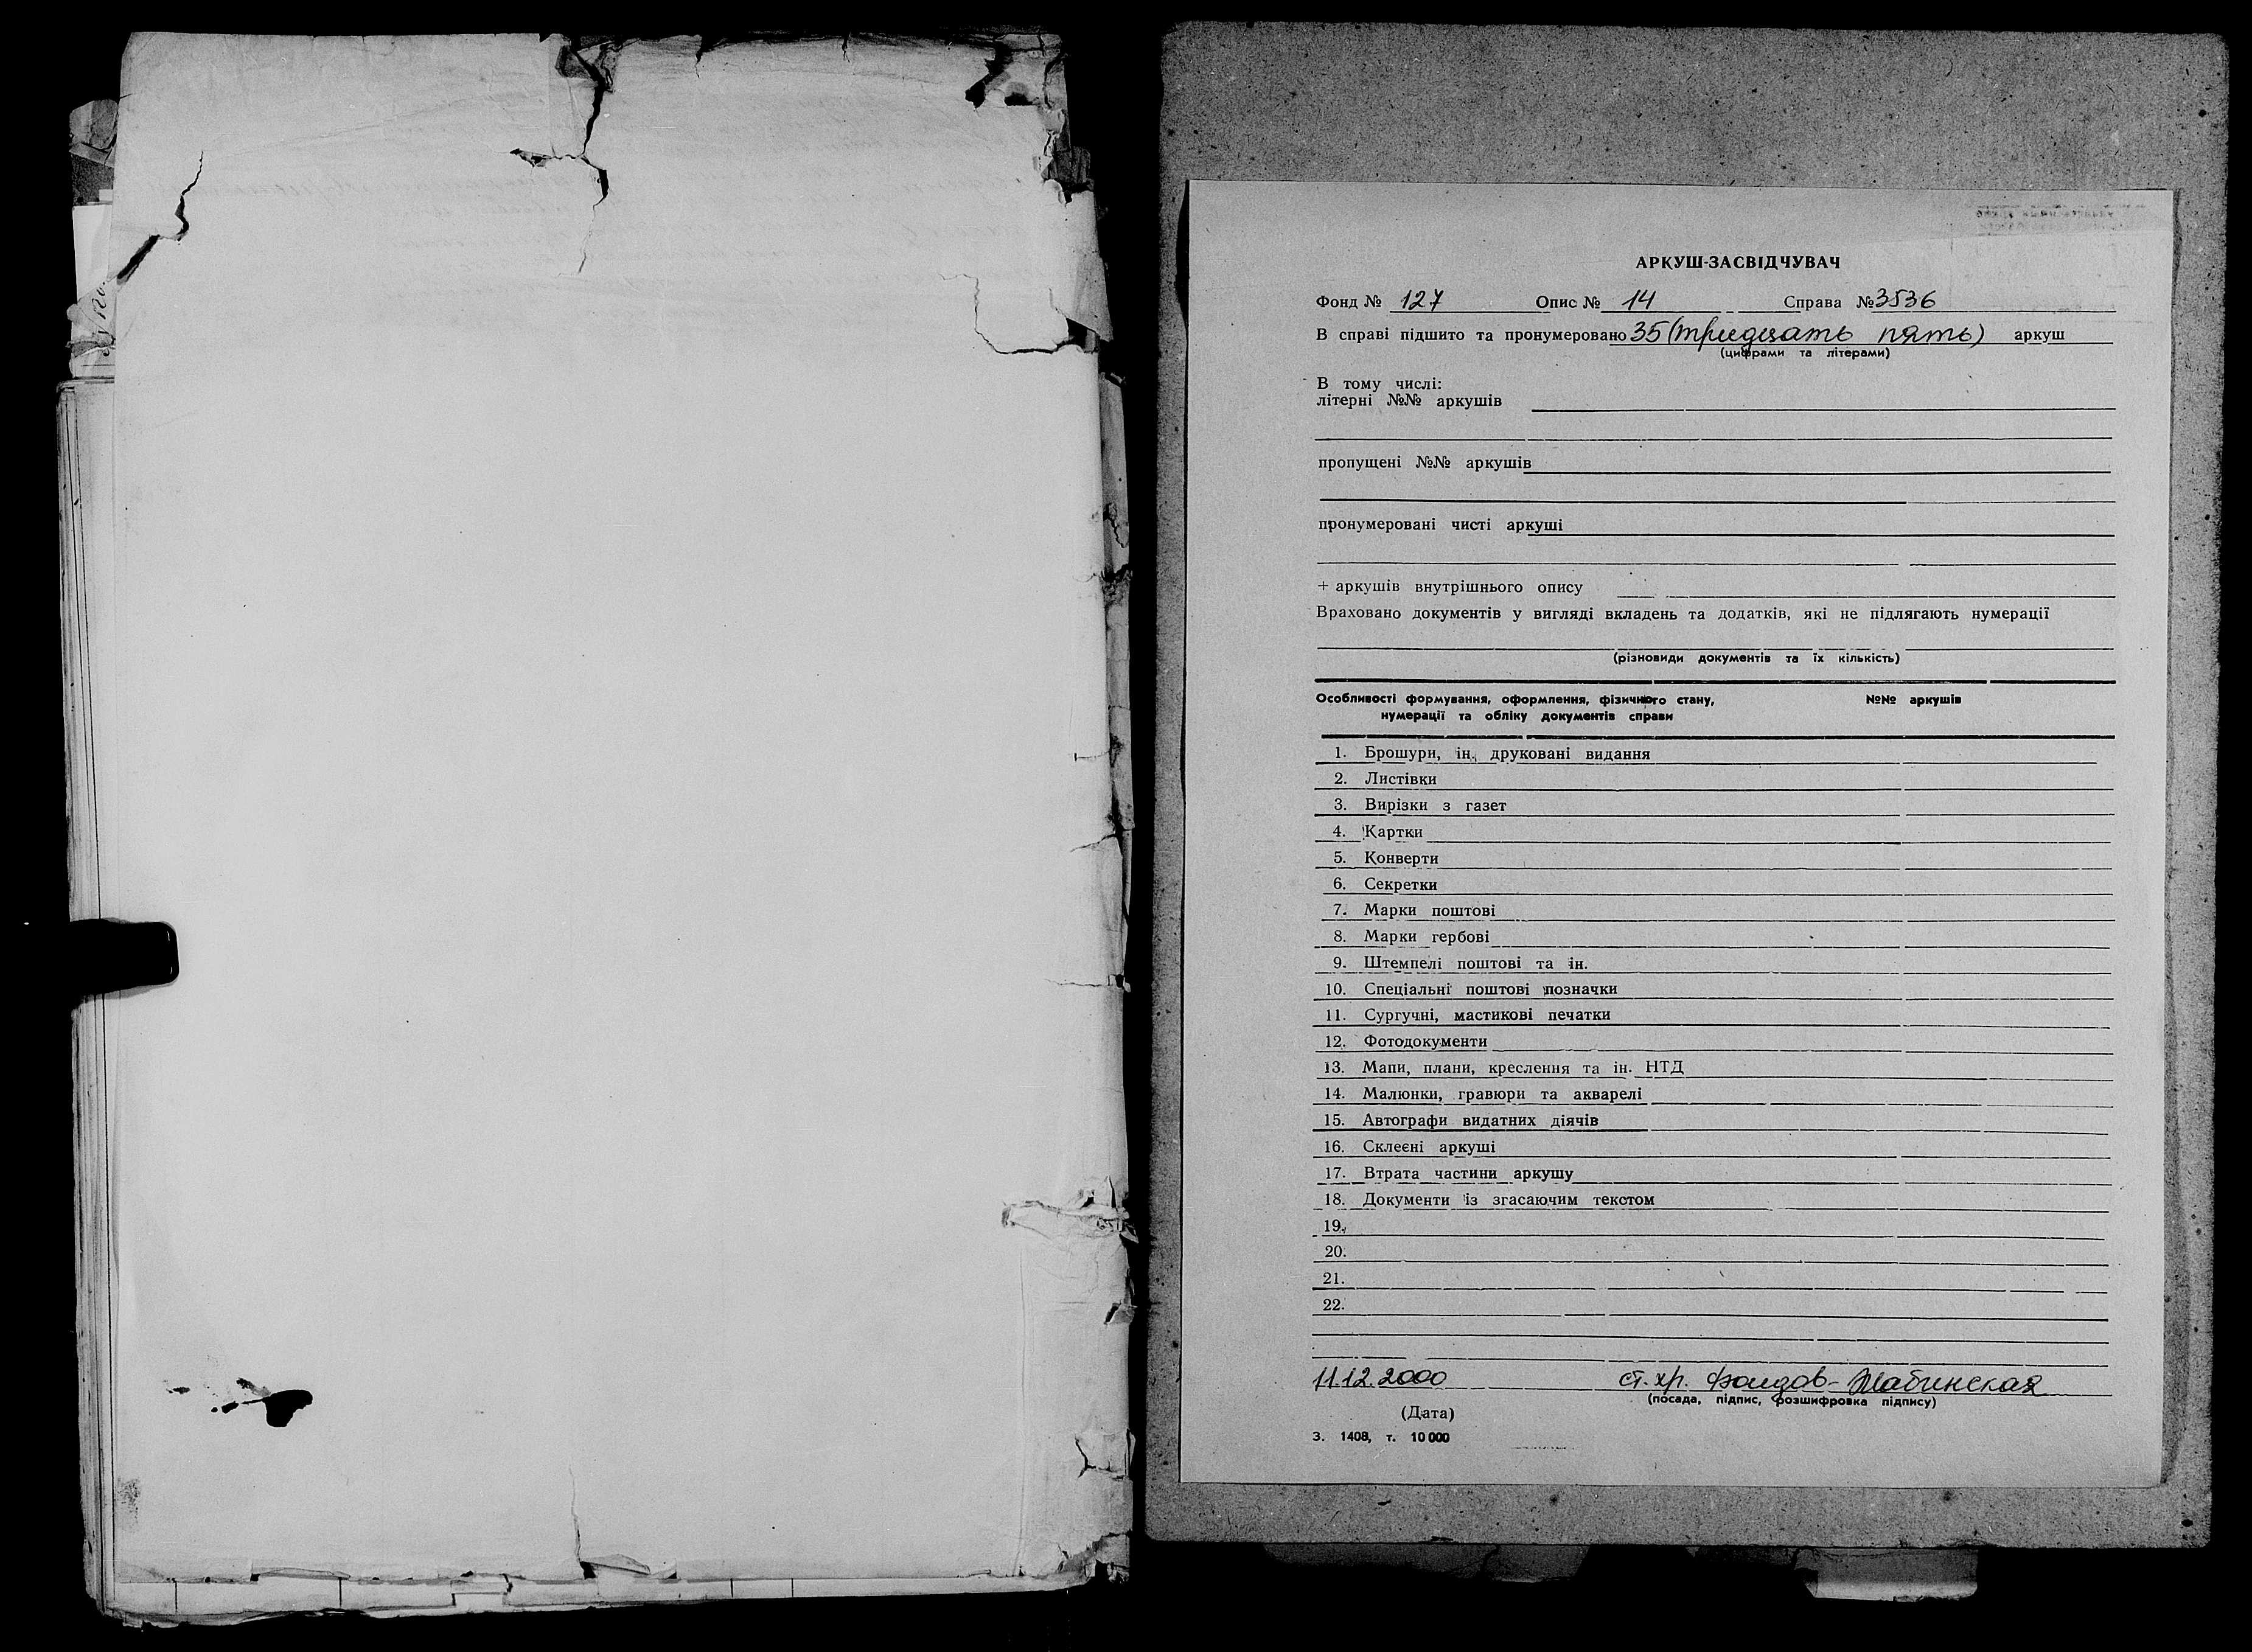 АРКУШ-ЗАСВІДЧУВАЧ
Фонд № 127 Опис № 14 Справа № 3536
В справі підшито та пронумеровано 35 (тридцать пять) аркуш
(цифрами та літерами)
В тому числі:
літерні №№ аркушів
пропущені №№ аркушів
пронумеровані чисті аркуші
+ аркушів внутрішнього опису
Враховано документів у вигляді вкладень та додатків, які не підлягають нумерації
(різновиди документів та їх кількість)
Особливості формування, оформлення, фізичного стану, №№ аркушів
нумерації та обліку документів справи
1. Брошури, ін. друковані видання
2. Листівки
3. Вирізки з газет
4. Картки
5. Конверти
6. Секретки
7. Марки поштові
8. Марки гербові
9. Штемпелі поштові та ін.
10. Спеціальні поштові позначки
11. Сургучні, мастикові печатки
12. Фотодокументи
13. Мапи, плани, креслення та ін. НТД
14. Малюнки, гравюри та акварелі
15. Автографи видатних діячів
16. Склеєні аркуші
17. Втрата частини аркушу
18. Документи із згасаючим текстом
19.
20.
21.
22.
11.12.2000 ст. хр. фондов-
(посада, підпис, розшифровка підпису)
(Дата)
З. 1408, т. 10 000